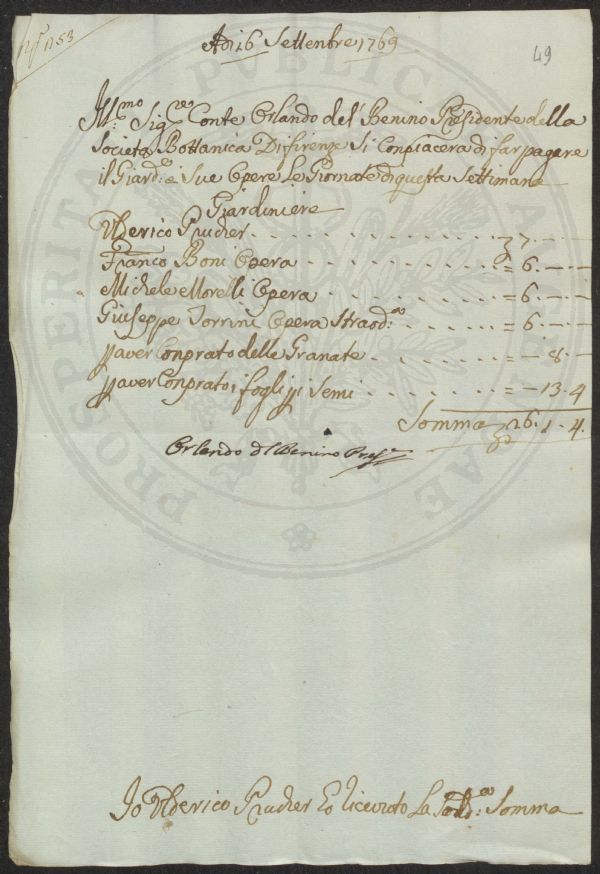 N.° 53
Adi 16 Settenbre 1769
49
Ill:mo Sig:re Conte Orlando del Benino Presidente della
Societa Bottanica Di firenze Si Conpiacera di far pagare
il Giard:e e Sue Opere Le Giornate di questa Settimana
Giardiniere
Ulderico Prucher 7.—
Franco Boni Opera = 6.—
Michele Morelli Opera = 6.—
Giuseppe Torrini Opera Straord:a = 6.—
p aver Conprato delle Granate = — 8.—
p aver Conprato i fogli pi Semi = — 13.4
Somma 26.1.4.
Orlando del Benino Pres.e
Io Ulderico Prucher Eo ricevuto La Sodd:a Somma
PROSPERITATI PUBLICAE AUGENDAE